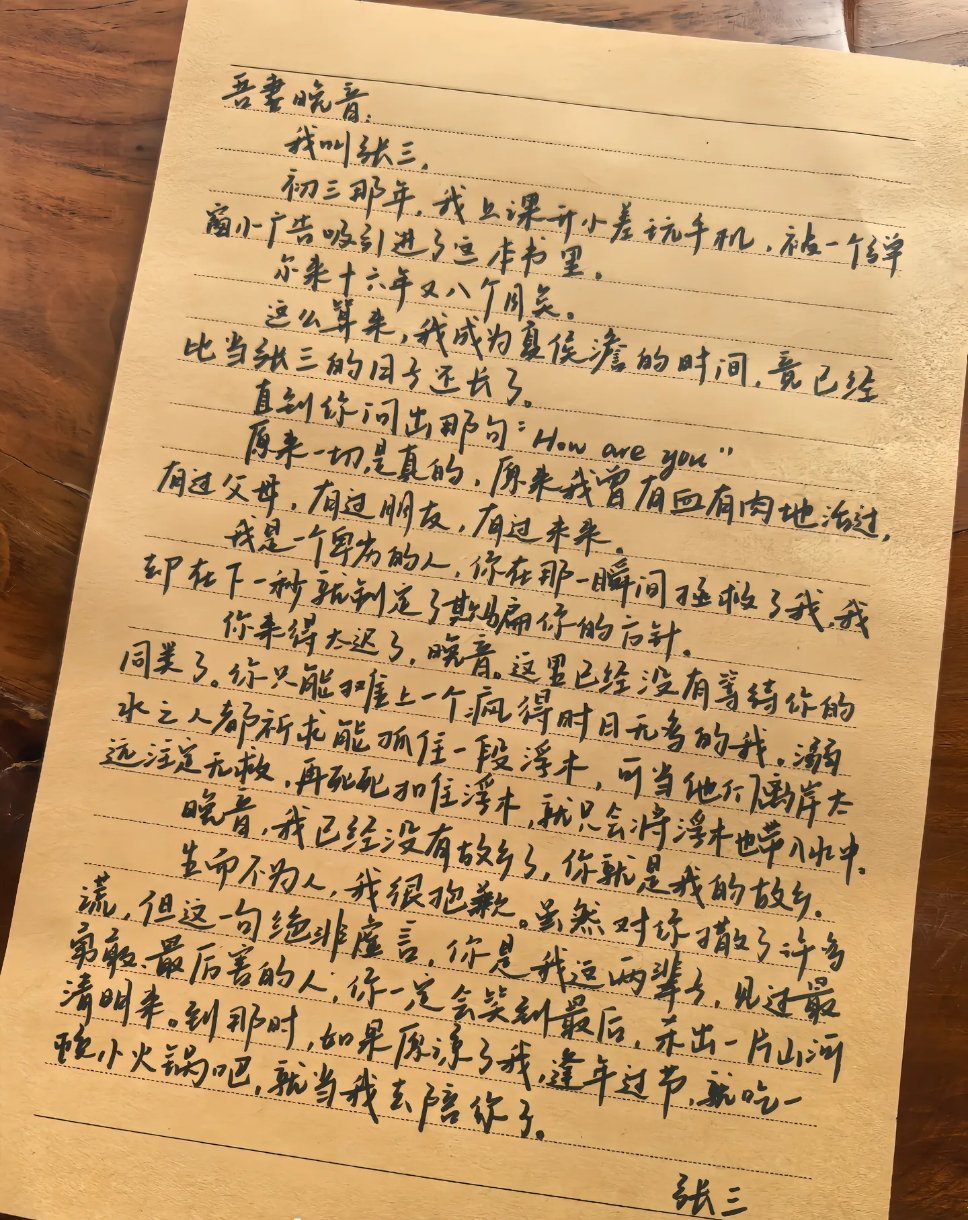 吾妻晚音:
我叫张三。
初三那年,我上课开小差玩手机,被一个弹
窗小广告吸引进了这本书里。
尔来十六年又八个月矣。
这么算来,我成为夏侯澹的时间,竟已经
比当张三的日子还长了。
直到你问出那句:“How are you”
原来一切是真的,原来我曾有血有肉地活过,
有过父母,有过朋友,有过未来。
我是一个卑劣的人,你在那一瞬间拯救了我,我
却在下一秒就制定了欺骗你的方针。
你来得太迟了,晚音。这里已经没有等待你的
同类了。你只能摊上一个疯得时日无多的我。溺
水之人都祈求能抓住一段浮木,可当他们离岸太
远注定无救,再死死扣住浮木,就只会将浮木也带入水中。
晚音,我已经没有故乡了,你就是我的故乡。
生而不为人,我很抱歉。虽然对你撒了许多
谎,但这一句绝非虚言,你是我这两辈子,见过最
勇敢、最厉害的人,你一定会笑到最后,杀出一片山河
清明来。到那时,如果原谅了我,逢年过节,就吃一
顿小火锅吧,就当我去陪你了。
张三